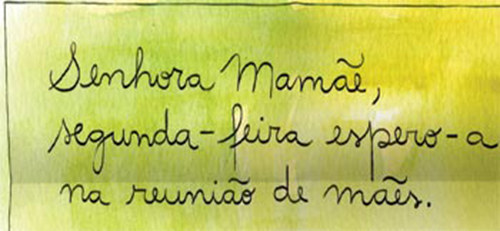 Senhora Mamãe,
segunda-feira espero-a
na reunião de mães.